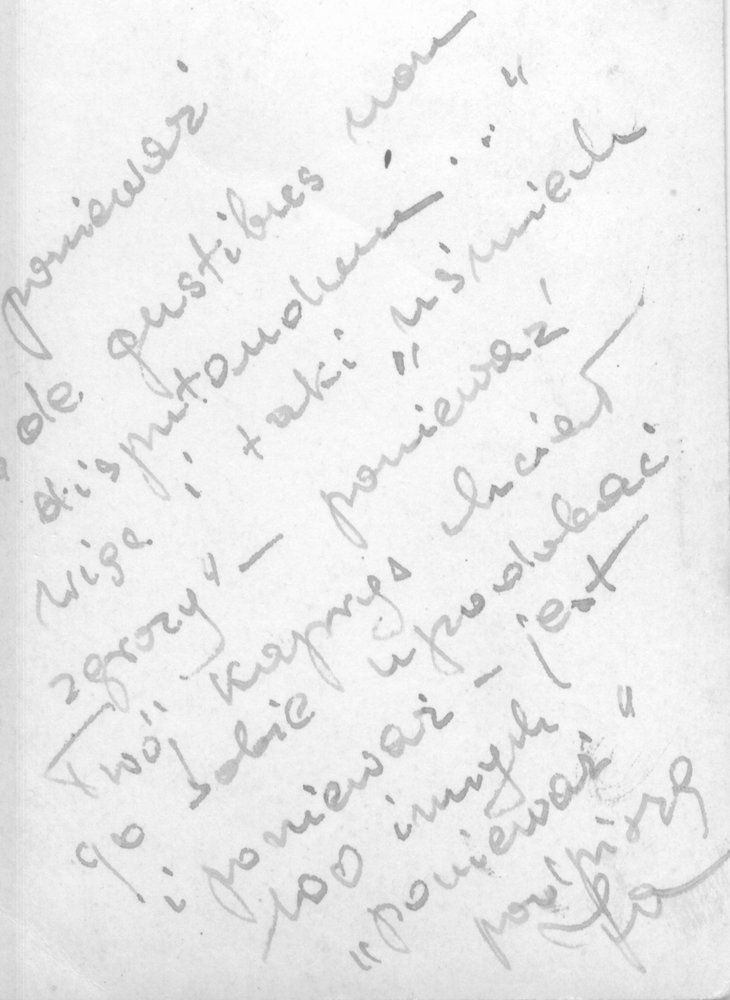 ponieważ
„de gustibus non
disputandum..."
więc i taki „uśmiech
zgrozy" – ponieważ
Twój kaprys chciał
go sobie upodobać
i ponieważ – jest
100 innych
„ponieważ"